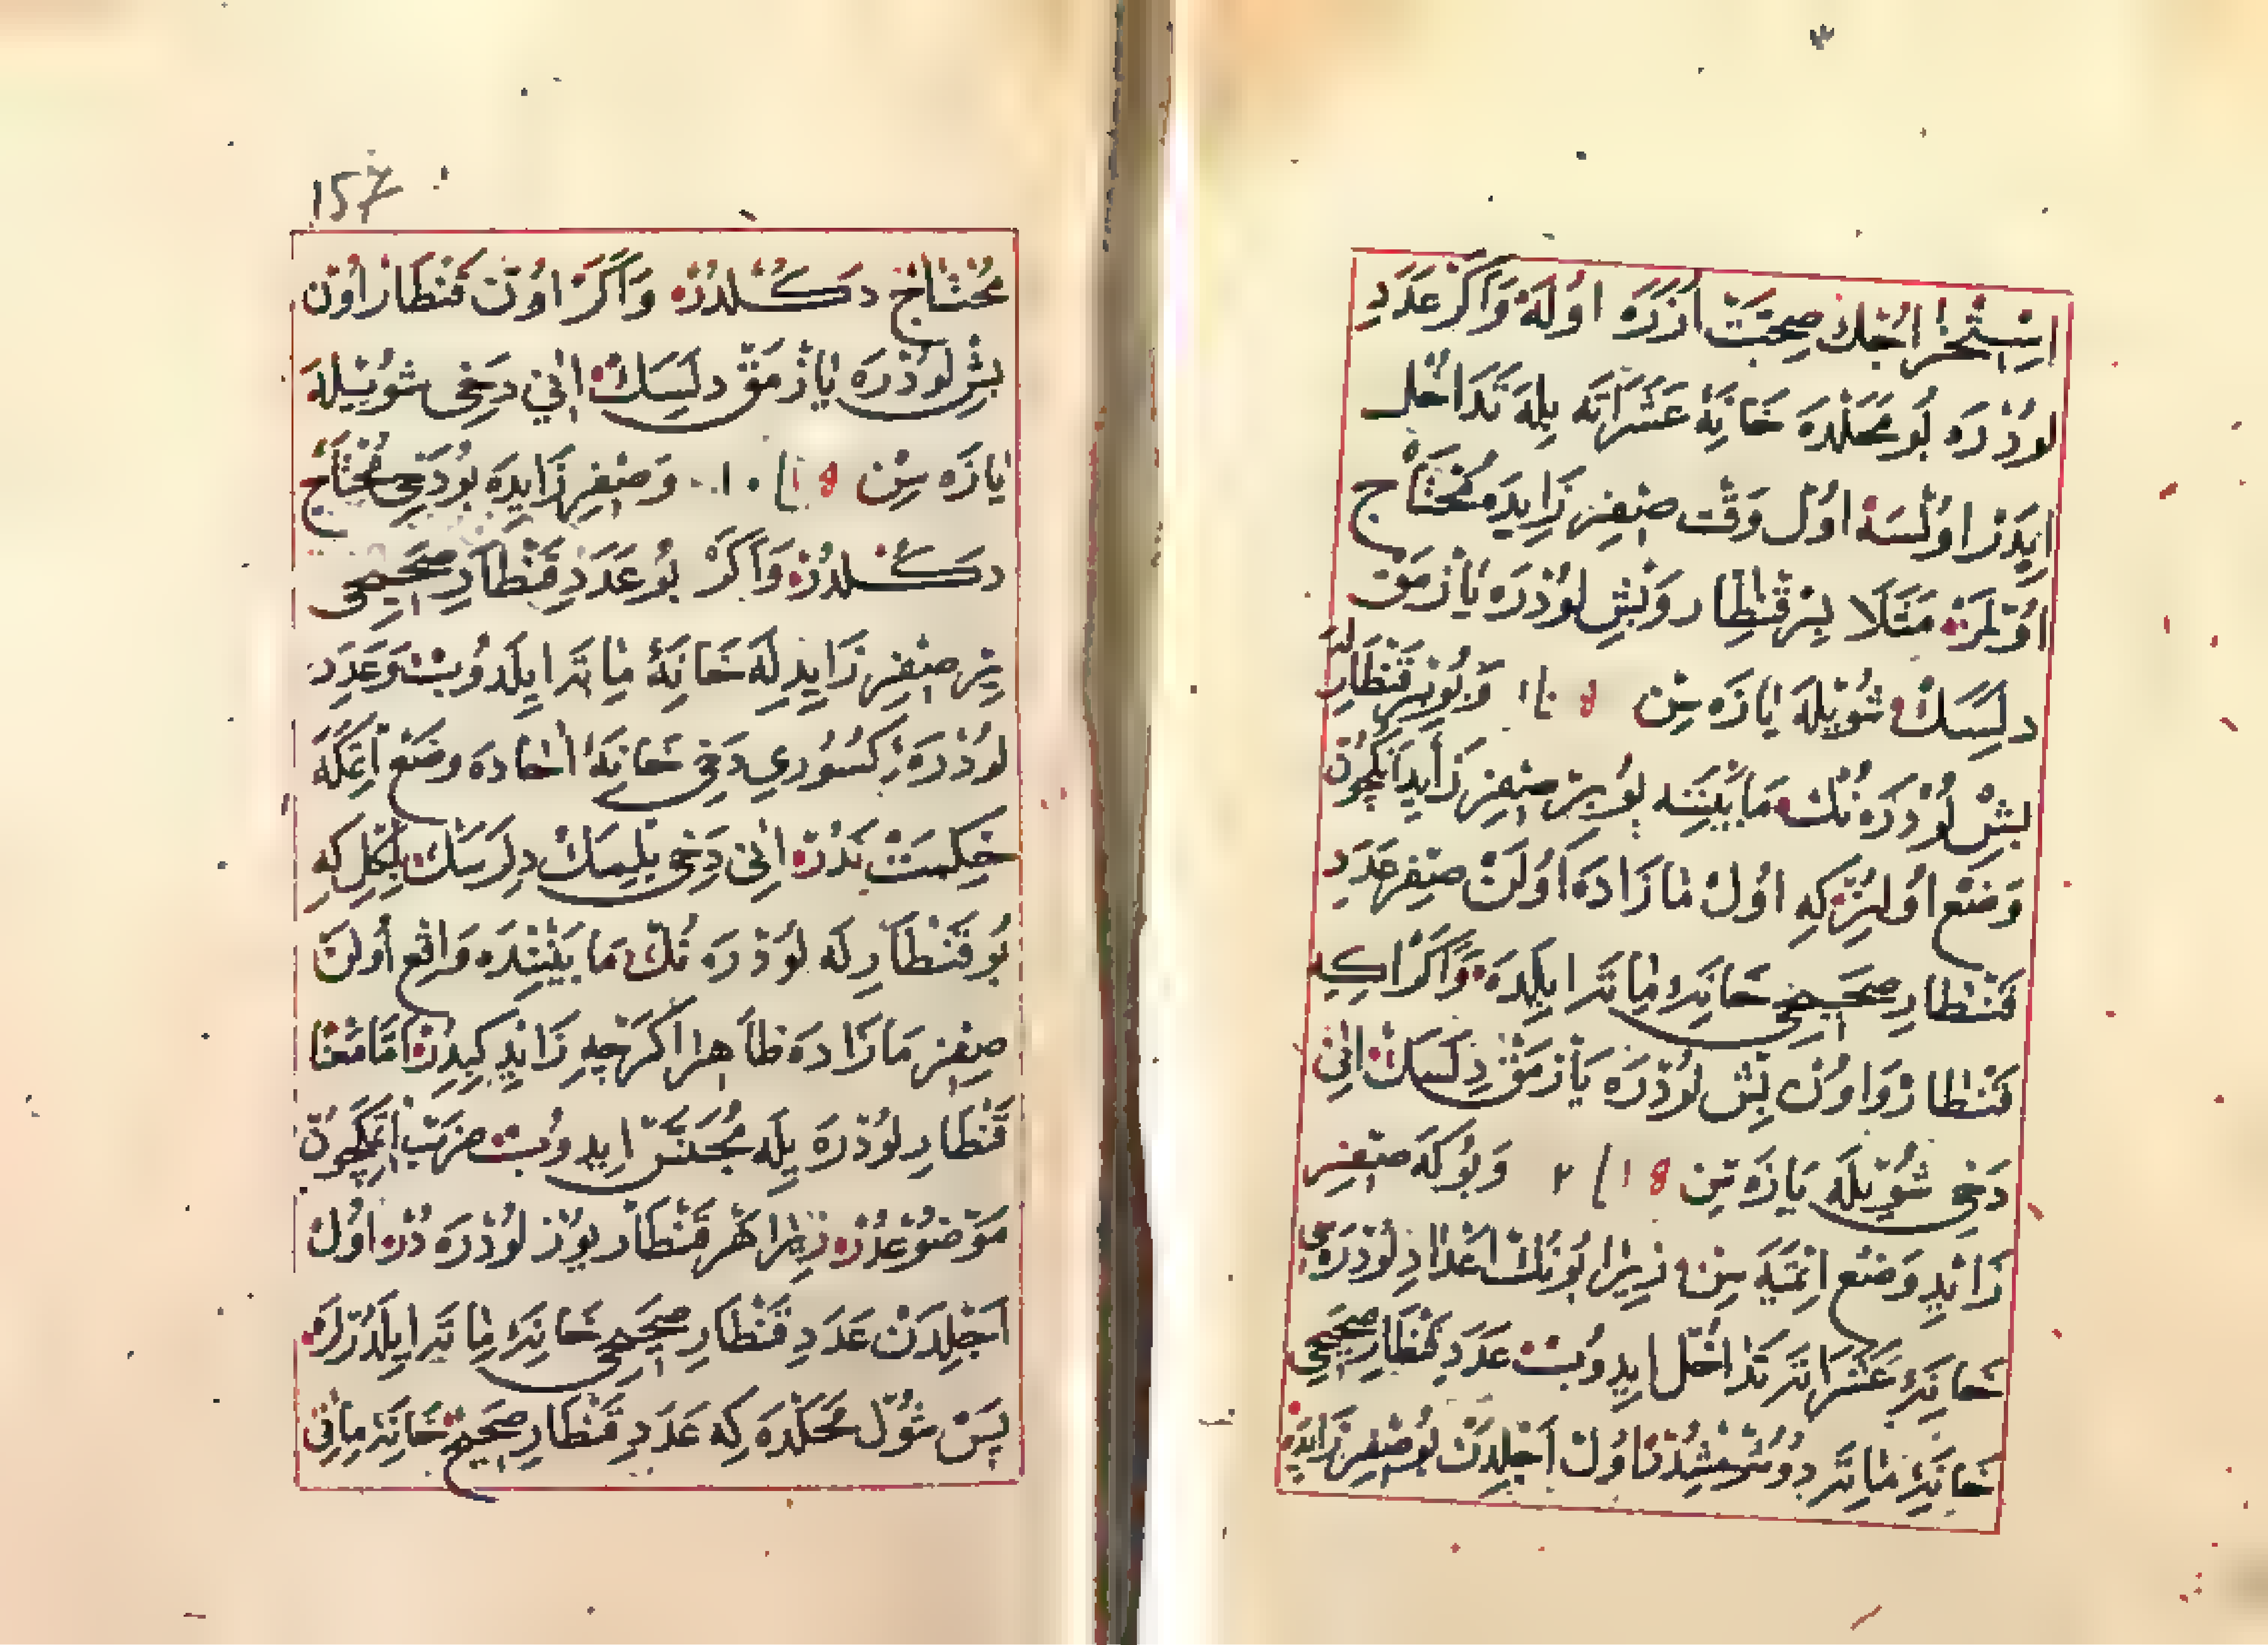 استخراجك صحت اوزره اوله واكر عدد
لودره بو محلده خانهٔ عشراته يله تداخل
ايدر اولسه اول وقت صفر زايده محتاج
اولمز مثلا بر قنطار وبش لودره يازمق
دلسك شويله يازه سن وبو بر قنطار له
بش لودره نك مابيننه بو بر صفر زايد انكچون
وضع اولنر كه اول مازاده اولن صفر عدد
قنطار صحيحى خانهٔ ماته ايلده واكر ايكى
قنطار واون بش لودره يازمق دلسك انى
دخى شويله يازه سن ٢ / ١ وبوكه صفر
زايد وضع اتميه سن زيرا بونك اعداد لودره سى
خانهٔ عشراته تداخل ايدوبت عدد قنطار صحيحى
خانهٔ ماته دوشمشدر اول اجلدن بو صفر زايده
١٥٧
محتاج دكلدر واكر اون قنطار اون
بش لودره يازمق دلسك انى دخى شويله
يازه سن وصفر زايده بو دخى محتاج
دكلدر واكر بو عدد قنطار صحيحى
بر صفر زايد له خانهٔ ماته ايلدوبت وعدد
لودره يى كسورى دخى خانهٔ احاده وضع اتمكه
حكمت ندر انى دخى بلمك دلرسك بلكل كه
بو قنطار له لودره نك مابيننده واقع اولن
صفر مازاده ظاهرا اكرچه زايد كبدر اما معنا
قنطار لودره يله مجنس ايدوبت ضرب اتمكچون
موضوعدر زيرا هر قنطار يوز لودره در اول
اجلدن عدد قنطار صحيحى خانهٔ ماته ايلدرلر
پس شول محلده كه عدد قنطار صحيح خانهٔ ماتى